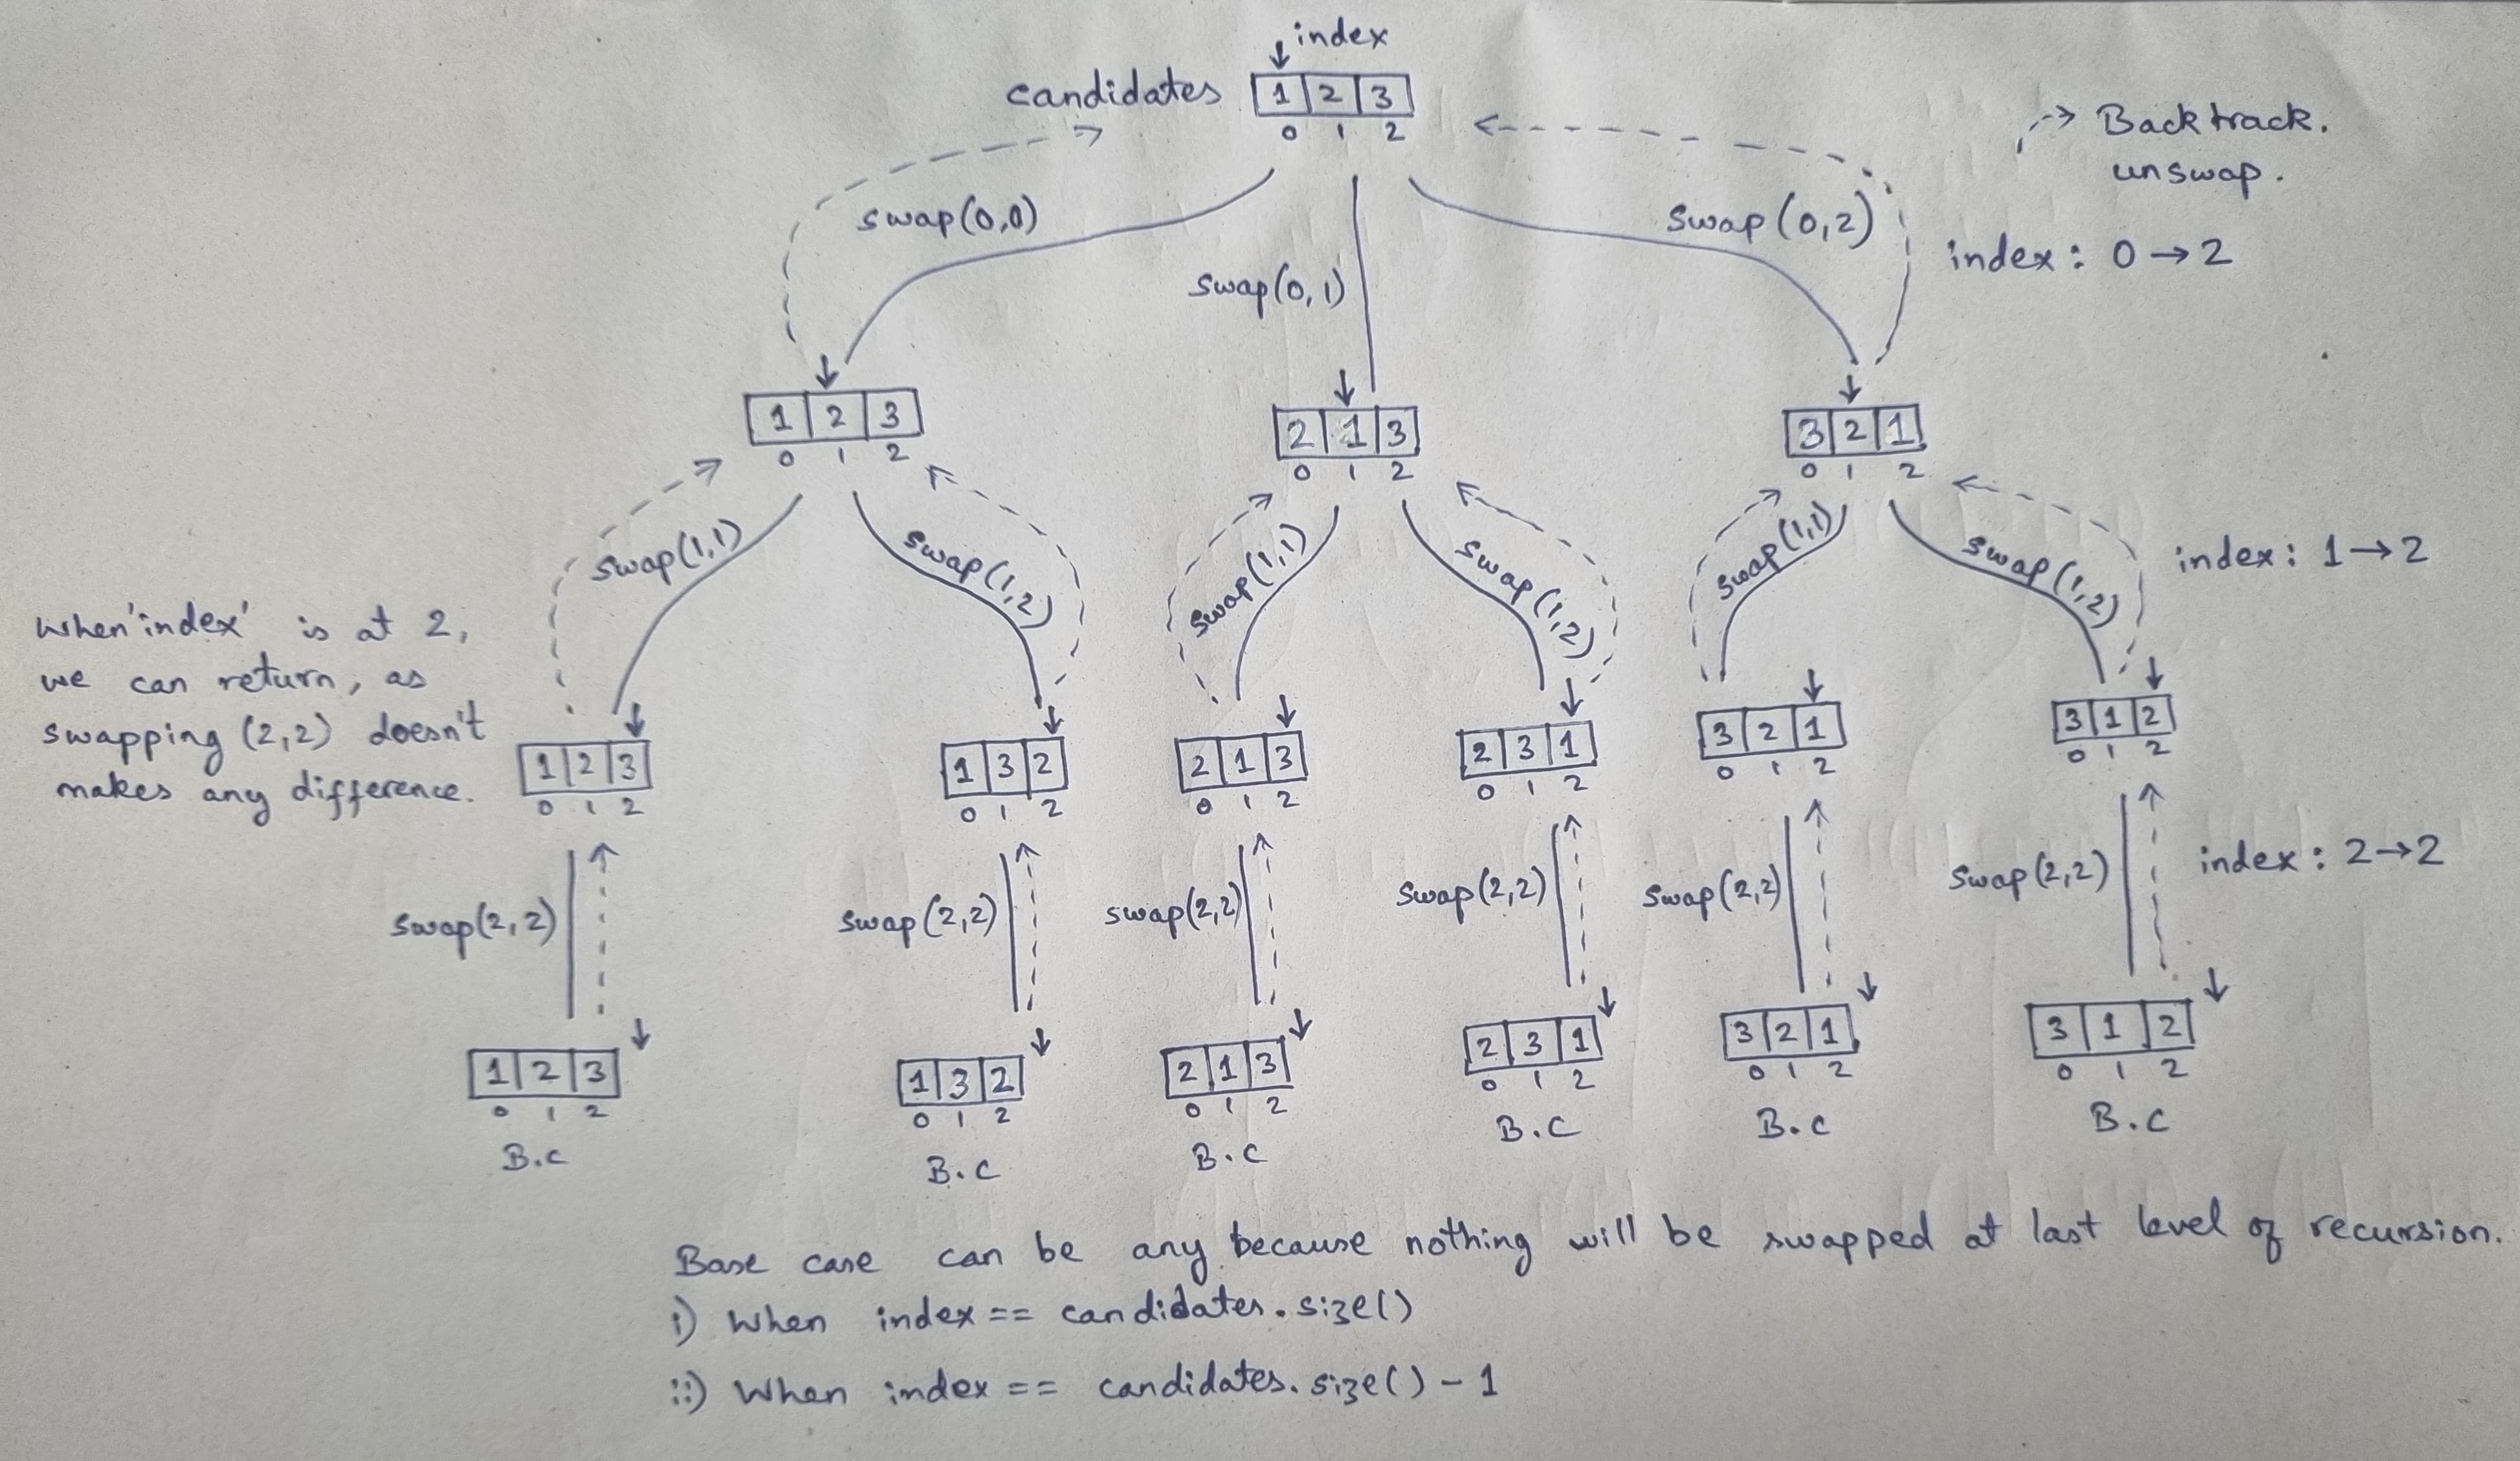 index
candidates 1 2 3
0 1 2
Backtrack.
unswap.
swap(0,0)
swap(0,1)
swap(0,2)
index: 0→2
1 2 3
0 1 2
2 1 3
0 1 2
3 2 1
0 1 2
swap(1,1)
swap(1,2)
swap(1,1)
swap(1,2)
swap(1,1)
swap(1,2)
index: 1→2
When 'index' is at 2,
we can return, as
swapping (2,2) doesn't
makes any difference.
1 2 3
0 1 2
1 3 2
0 1 2
2 1 3
0 1 2
2 3 1
0 1 2
3 2 1
0 1 2
3 1 2
0 1 2
swap(2,2)
swap(2,2)
swap(2,2)
swap(2,2)
swap(2,2)
swap(2,2)
index: 2→2
1 2 3
0 1 2
B.C
1 3 2
0 1 2
B.C
2 1 3
0 1 2
B.C
2 3 1
0 1 2
B.C
3 2 1
0 1 2
B.C
3 1 2
0 1 2
B.C
Base case can be any because nothing will be swapped at last level of recursion.
i) When index == candidates.size()
ii) When index == candidates.size() - 1